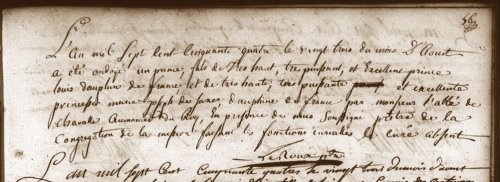 56
L'an mil Sept Cent Cinquante quatre le vingt trois du mois D'Aoust
a été ondoyé un prince, fils de Tres haut, tres puissant, et Excellent prince
louis dauphin de france et de tres haute, tres puissante et excellente
princesse marie Joseph de Saxe, dauphine de france par monsieur l'abbé de
Chavale Aumonier du Roy, En presence de nous Soussigné prêtre de la
Congregation de la mission faisant les fonctions curiales le Curé absent
Le Roux ptre
L'an mil sept Cent Cinquante quatre le vingt trois du mois d'aout